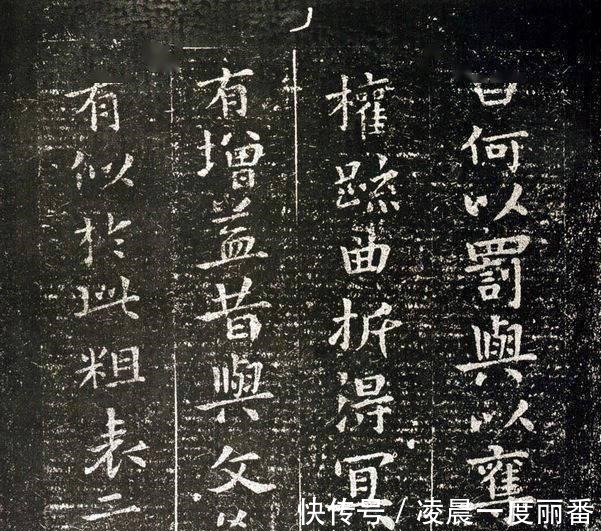 何以罰與以雍
權踈曲折得宜
有增益昔與文
有似於此粗表二
快传号/凌晨一度丽番